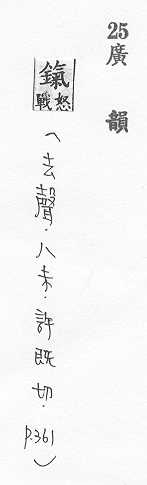 25廣韻
鎎
怒戰
(去聲.八未.許既切.P.361)